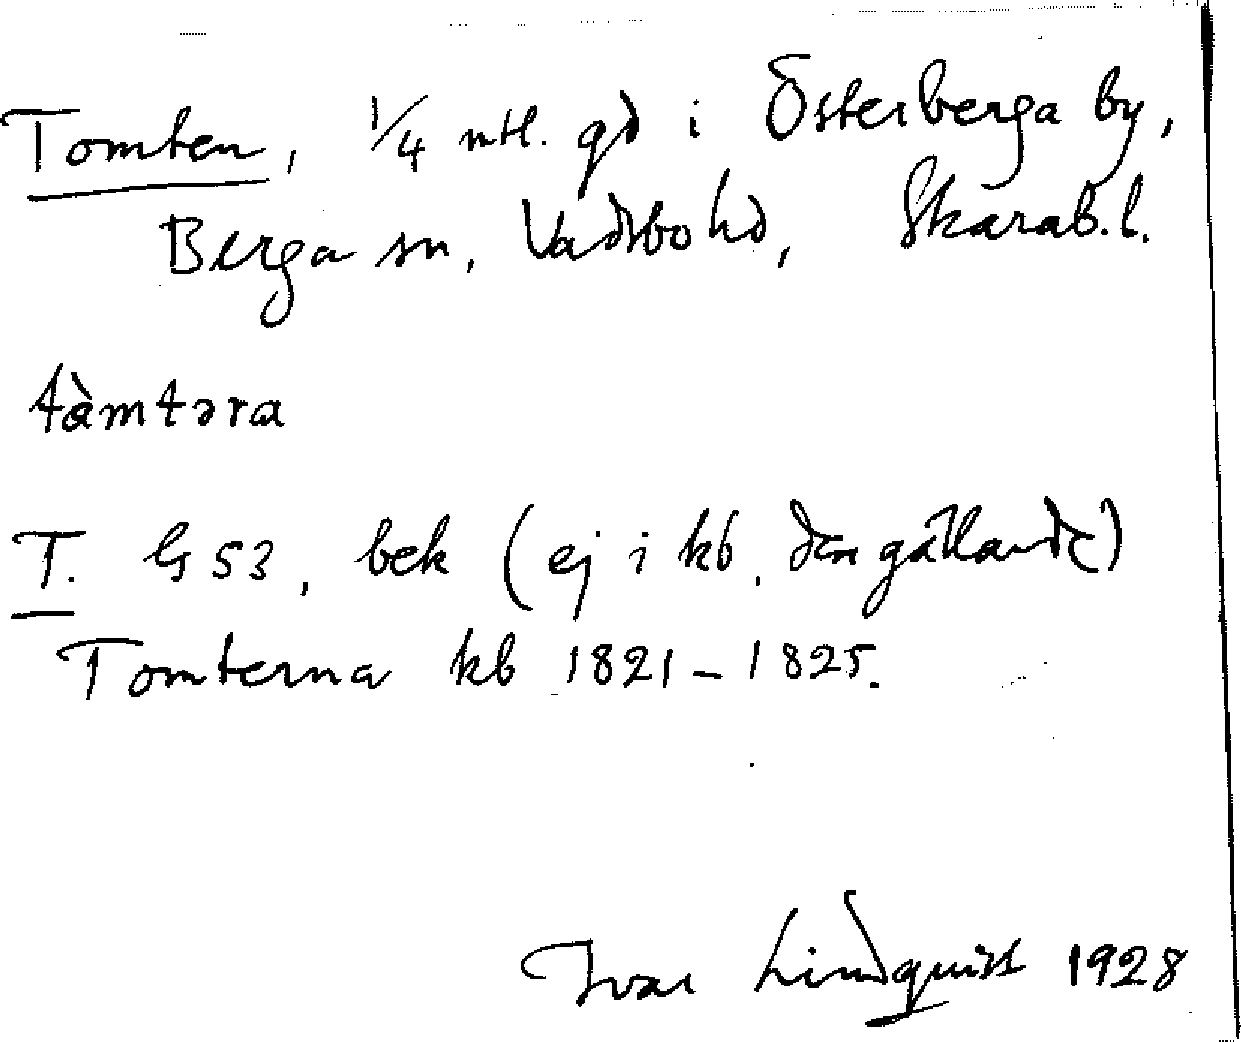 Tomten, 1/4 mtl. gd i Österberga by,
Berga sn, Vadsbo hd, Skarab.l.
tàmtəra
T. G 53, bek (ej i kb, den gällande)
Tomterna kb 1821-1825.
Ivar Lindquist 1928